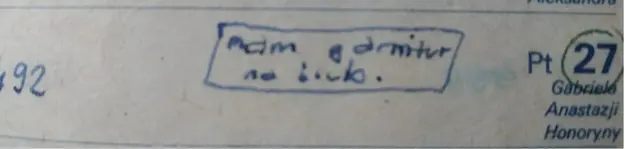 Aleksandra
mam garnitur
na ślub.
492
Pt 27
Gabriela
Anastazji
Honoryny